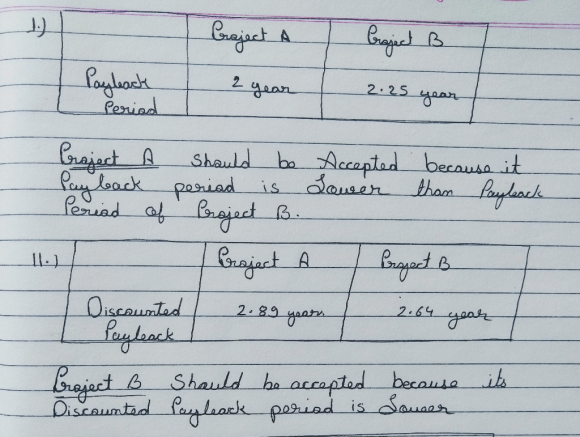 1.) Project A Project B
Payback 2 year 2.25 year
Period
Project A should be Accepted because it
Payback period is Lower than Payback
Period of Project B.
11.) Project A Project B
Discounted 2.89 years 2.64 year
Payback
Project B Should be accepted because its
Discounted Payback period is Lower